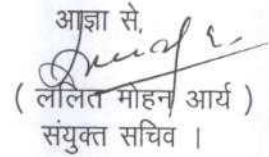 आज्ञा से,
( ललित मोहन आर्य )
संयुक्त सचिव ।